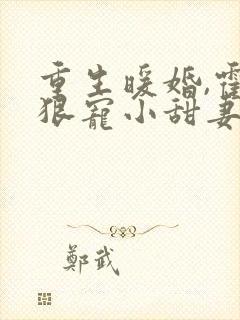 重生暖婚,霍
狠寵小甜妻
鄭武